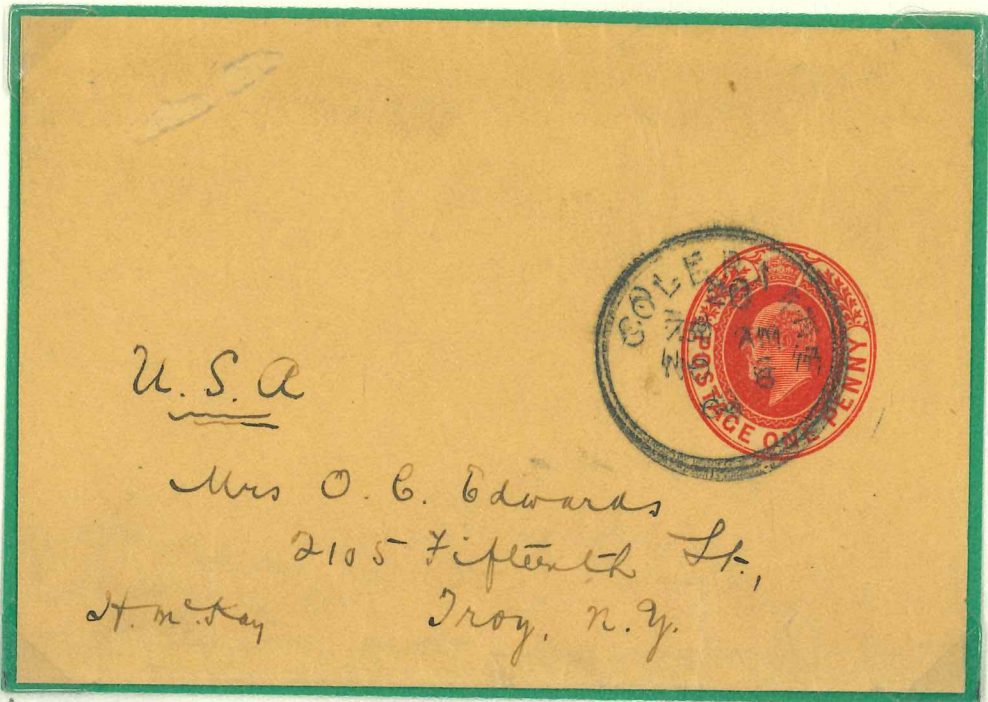 POSTAGE ONE PENNY
U.S.A
Mrs O. C. Edwards
2105 Fifteenth St.,
Troy, N.Y.
H. McKay